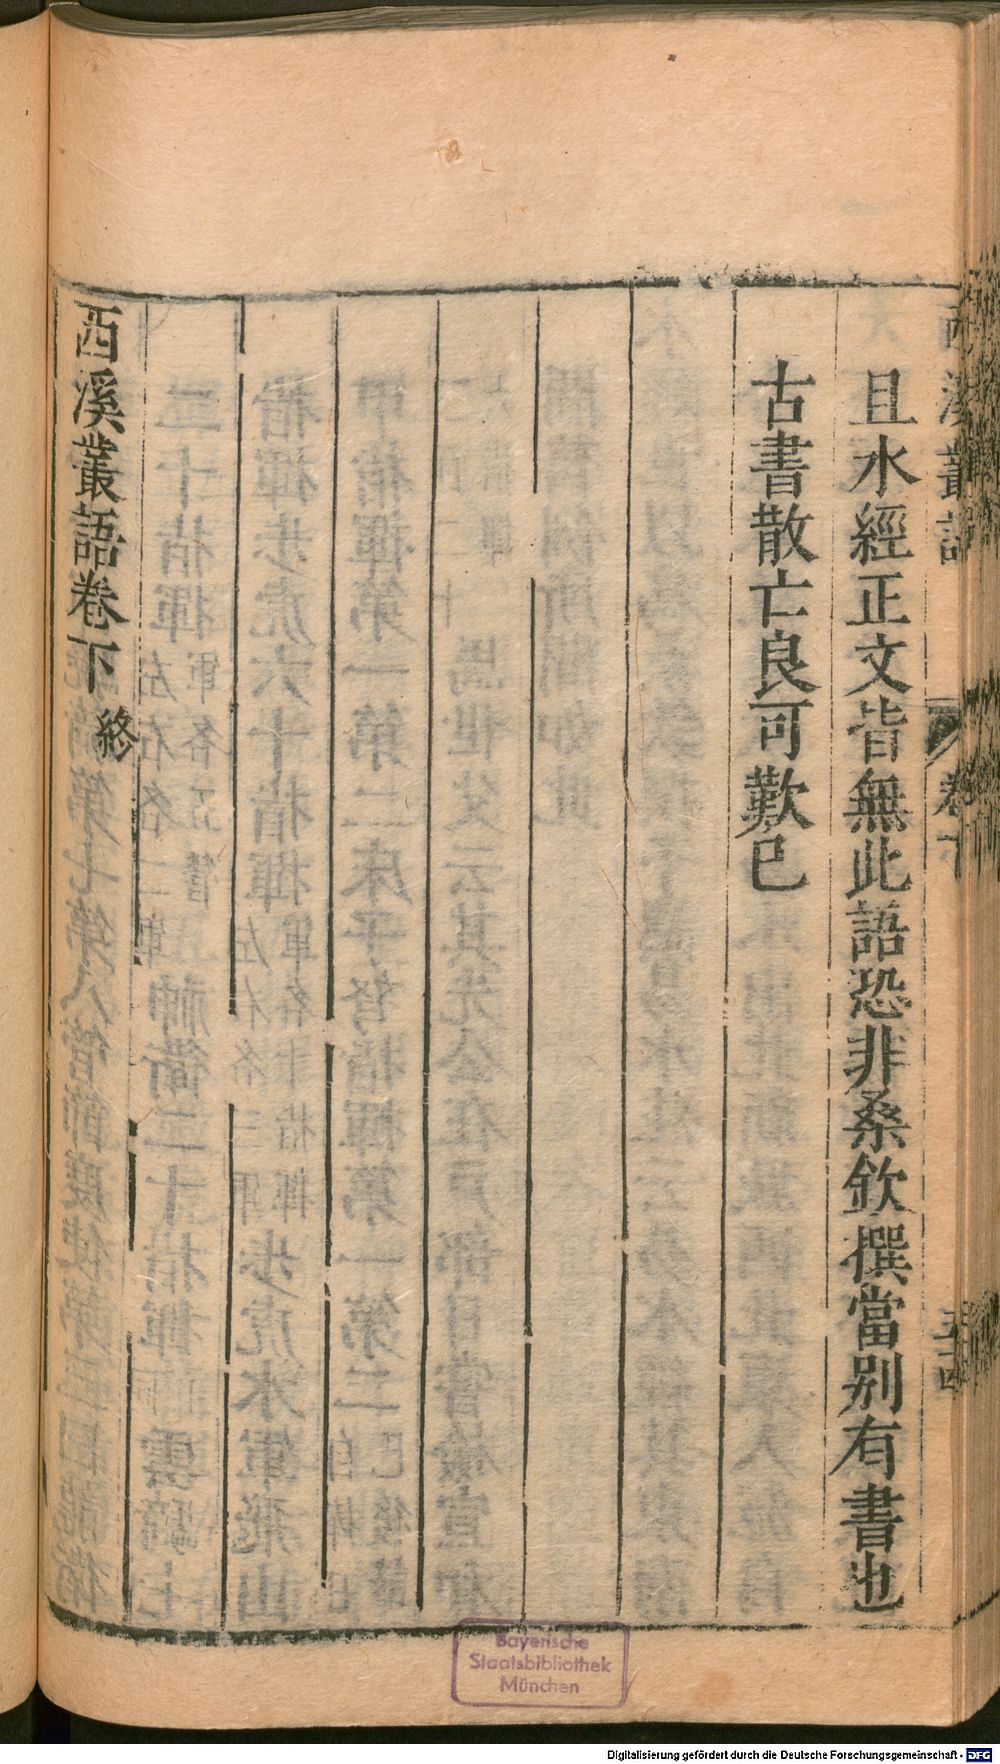 西溪叢語
卷下
五十四
且水經正文皆無此語恐非桑欽撰當别有書也
古書散亡良可歎已
西溪叢語卷下 終
Bayerische
Staatsbibliothek
München
Digitalisierung gefördert durch die Deutsche Forschungsgemeinschaft - DFG